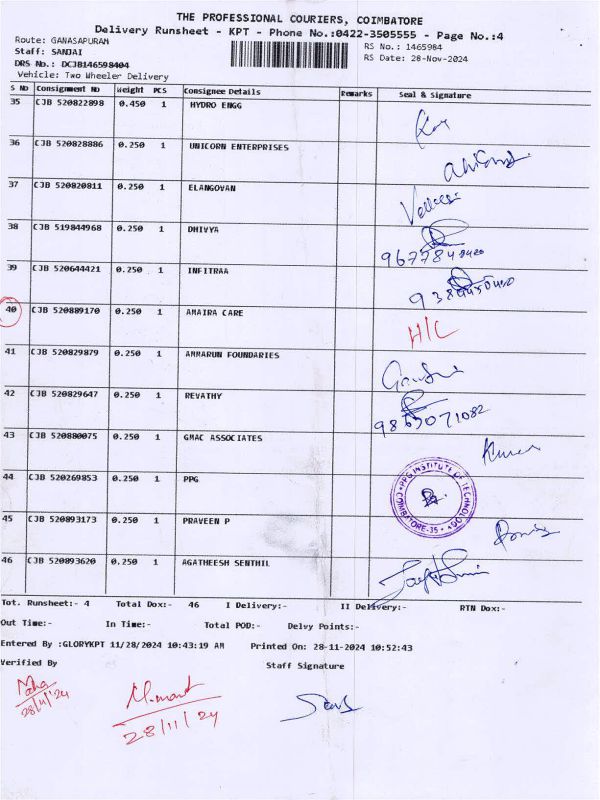 THE PROFESSIONAL COURIERS, COIMBATORE
Delivery Runsheet - KPT - Phone No.:0422-3505555 - Page No.:4
Route: GANASAPURAM
RS No.: 1465984
Staff: SANJAI
RS Date: 28-Nov-2024
DRS No.: DCJB146598404
Vehicle: Two Wheeler Delivery
S No Consignment No Weight PCS Consignee Details Remarks Seal & Signature
35 CJB 520822898 0.450 1 HYDRO ENGG
36 CJB 520828886 0.250 1 UNICORN ENTERPRISES
37 CJB 520820811 0.250 1 ELANGOVAN
38 CJB 519844968 0.250 1 DHIVYA
39 CJB 520644421 0.250 1 INFITRAA
40 CJB 520889170 0.250 1 AMAIRA CARE H/C
41 CJB 520829879 0.250 1 AMMARUN FOUNDARIES
42 CJB 520829647 0.250 1 REVATHY 9865071082
43 CJB 520880075 0.250 1 GMAC ASSOCIATES Kumar
44 CJB 520269853 0.250 1 PPG PPG INSTITUTE OF TECHNOLOGY COIMBATORE-35
45 CJB 520893173 0.250 1 PRAVEEN P
46 CJB 520893620 0.250 1 AGATHEESH SENTHIL
Tot. Runsheet:- 4 Total Dox:- 46 I Delivery:- II Delivery:- RTN Dox:-
Out Time:- In Time:- Total POD:- Delvy Points:-
Entered By :GLORYKPT 11/28/2024 10:43:19 AM Printed On: 28-11-2024 10:52:43
Verified By Staff Signature
28/11/24
28/11/24